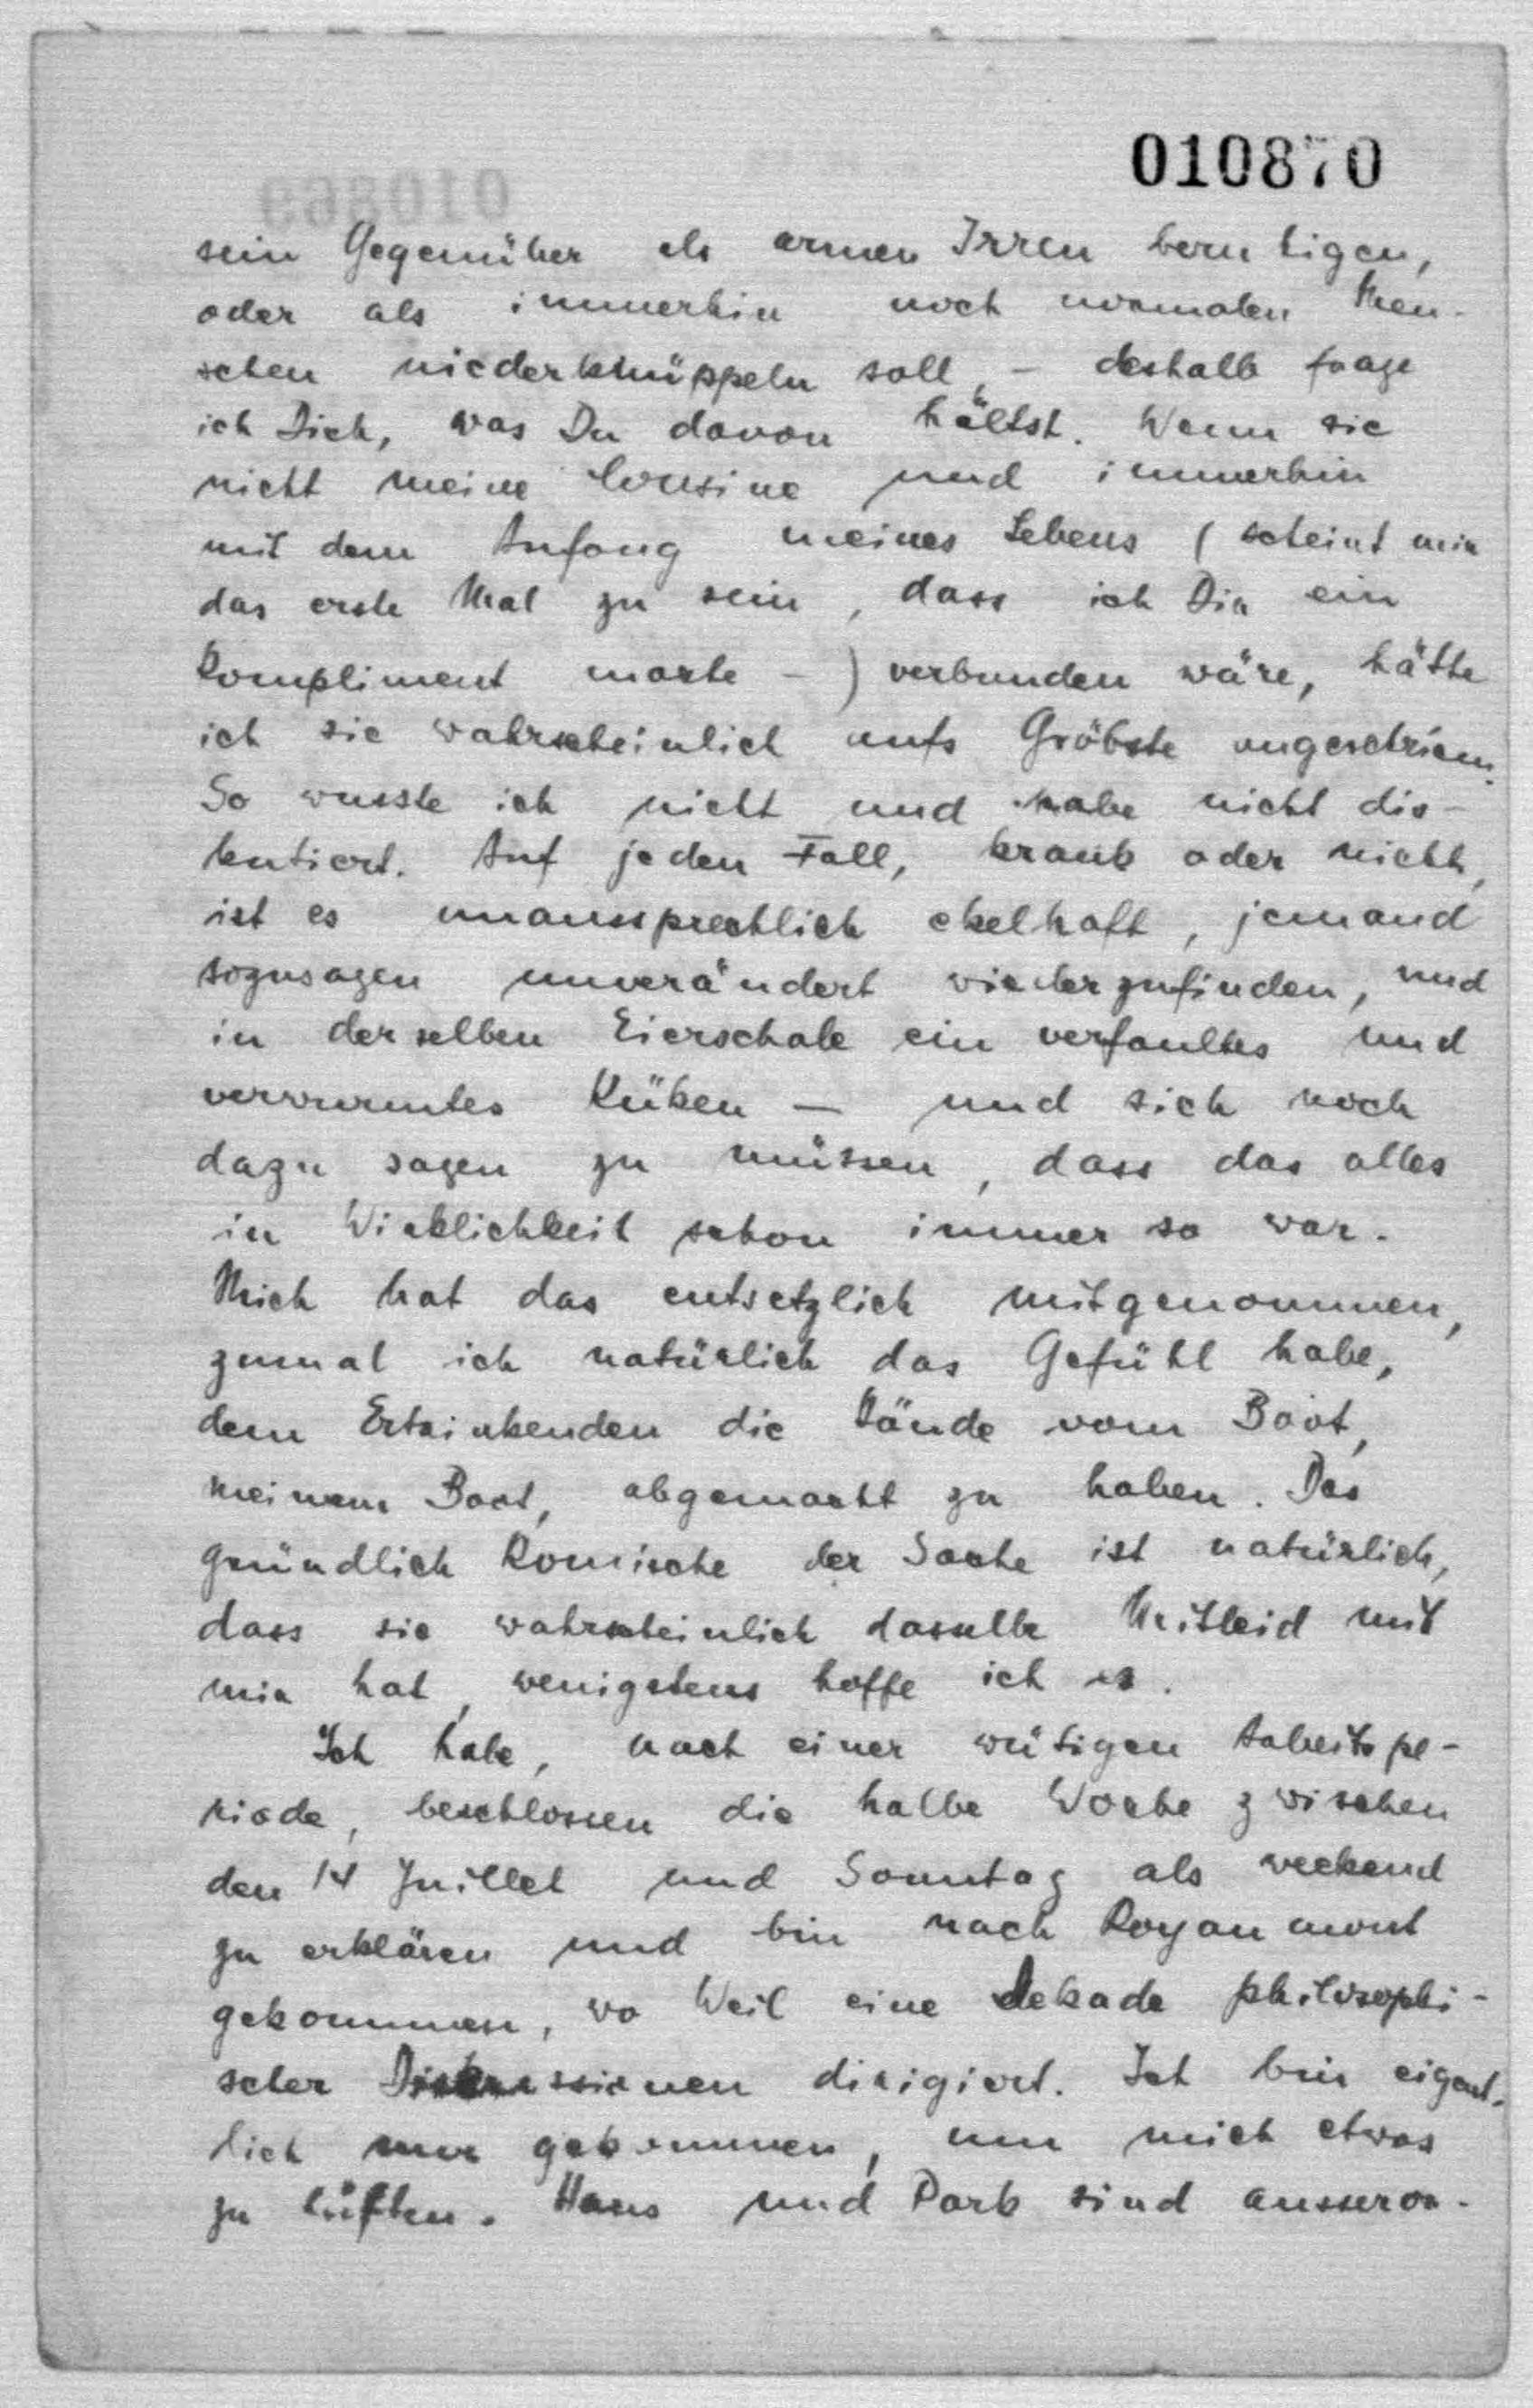 010870
010869
sein Gegenüber als armen Irren beruhigen,
oder als immerhin noch normalen Men-
schen niederknüppeln soll, - deshalb frage
ich Dich, was Du davon hältst. Wenn sie
nicht meine Cousine und immerhin
mit dem Anfang meines Lebens (scheint mir
das erste Mal zu sein, dass ich Dir ein
Kompliment mache -) verbunden wäre, hätte
ich sie wahrscheinlich aufs Gröbste angeschrieen.
So wusste ich nicht und habe nicht dis-
kutiert. Auf jeden Fall, krank oder nicht,
ist es unaussprechlich ekelhaft, jemand
sozusagen unverändert wiederzufinden, und
in derselben Eierschale ein verfaultes und
verwurmtes Küken — und sich noch
dazu sagen zu müssen, dass das alles
in Wirklichkeit schon immer so war.
Mich hat das entsetzlich mitgenommen,
zumal ich natürlich das Gefühl habe,
dem Ertrinkenden die Hände vom Boot,
meinem Boot, abgemacht zu haben. Das
gründlich Komische der Sache ist natürlich,
dass sie wahrscheinlich dasselbe Mitleid mit
mir hat, wenigstens hoffe ich es.
Ich habe, nach einer wütigen Arbeitspe-
riode, beschlossen die halbe Woche zwischen
den 14 Juillet und Sonntag als weekend
zu erklären und bin nach Royaumont
gekommen, wo Weil eine Dekade philosophi-
scher Diskussionen dirigiert. Ich bin eigent-
lich nur gekommen, um mich etwas
zu lüften. Haus und Park sind ausseror-